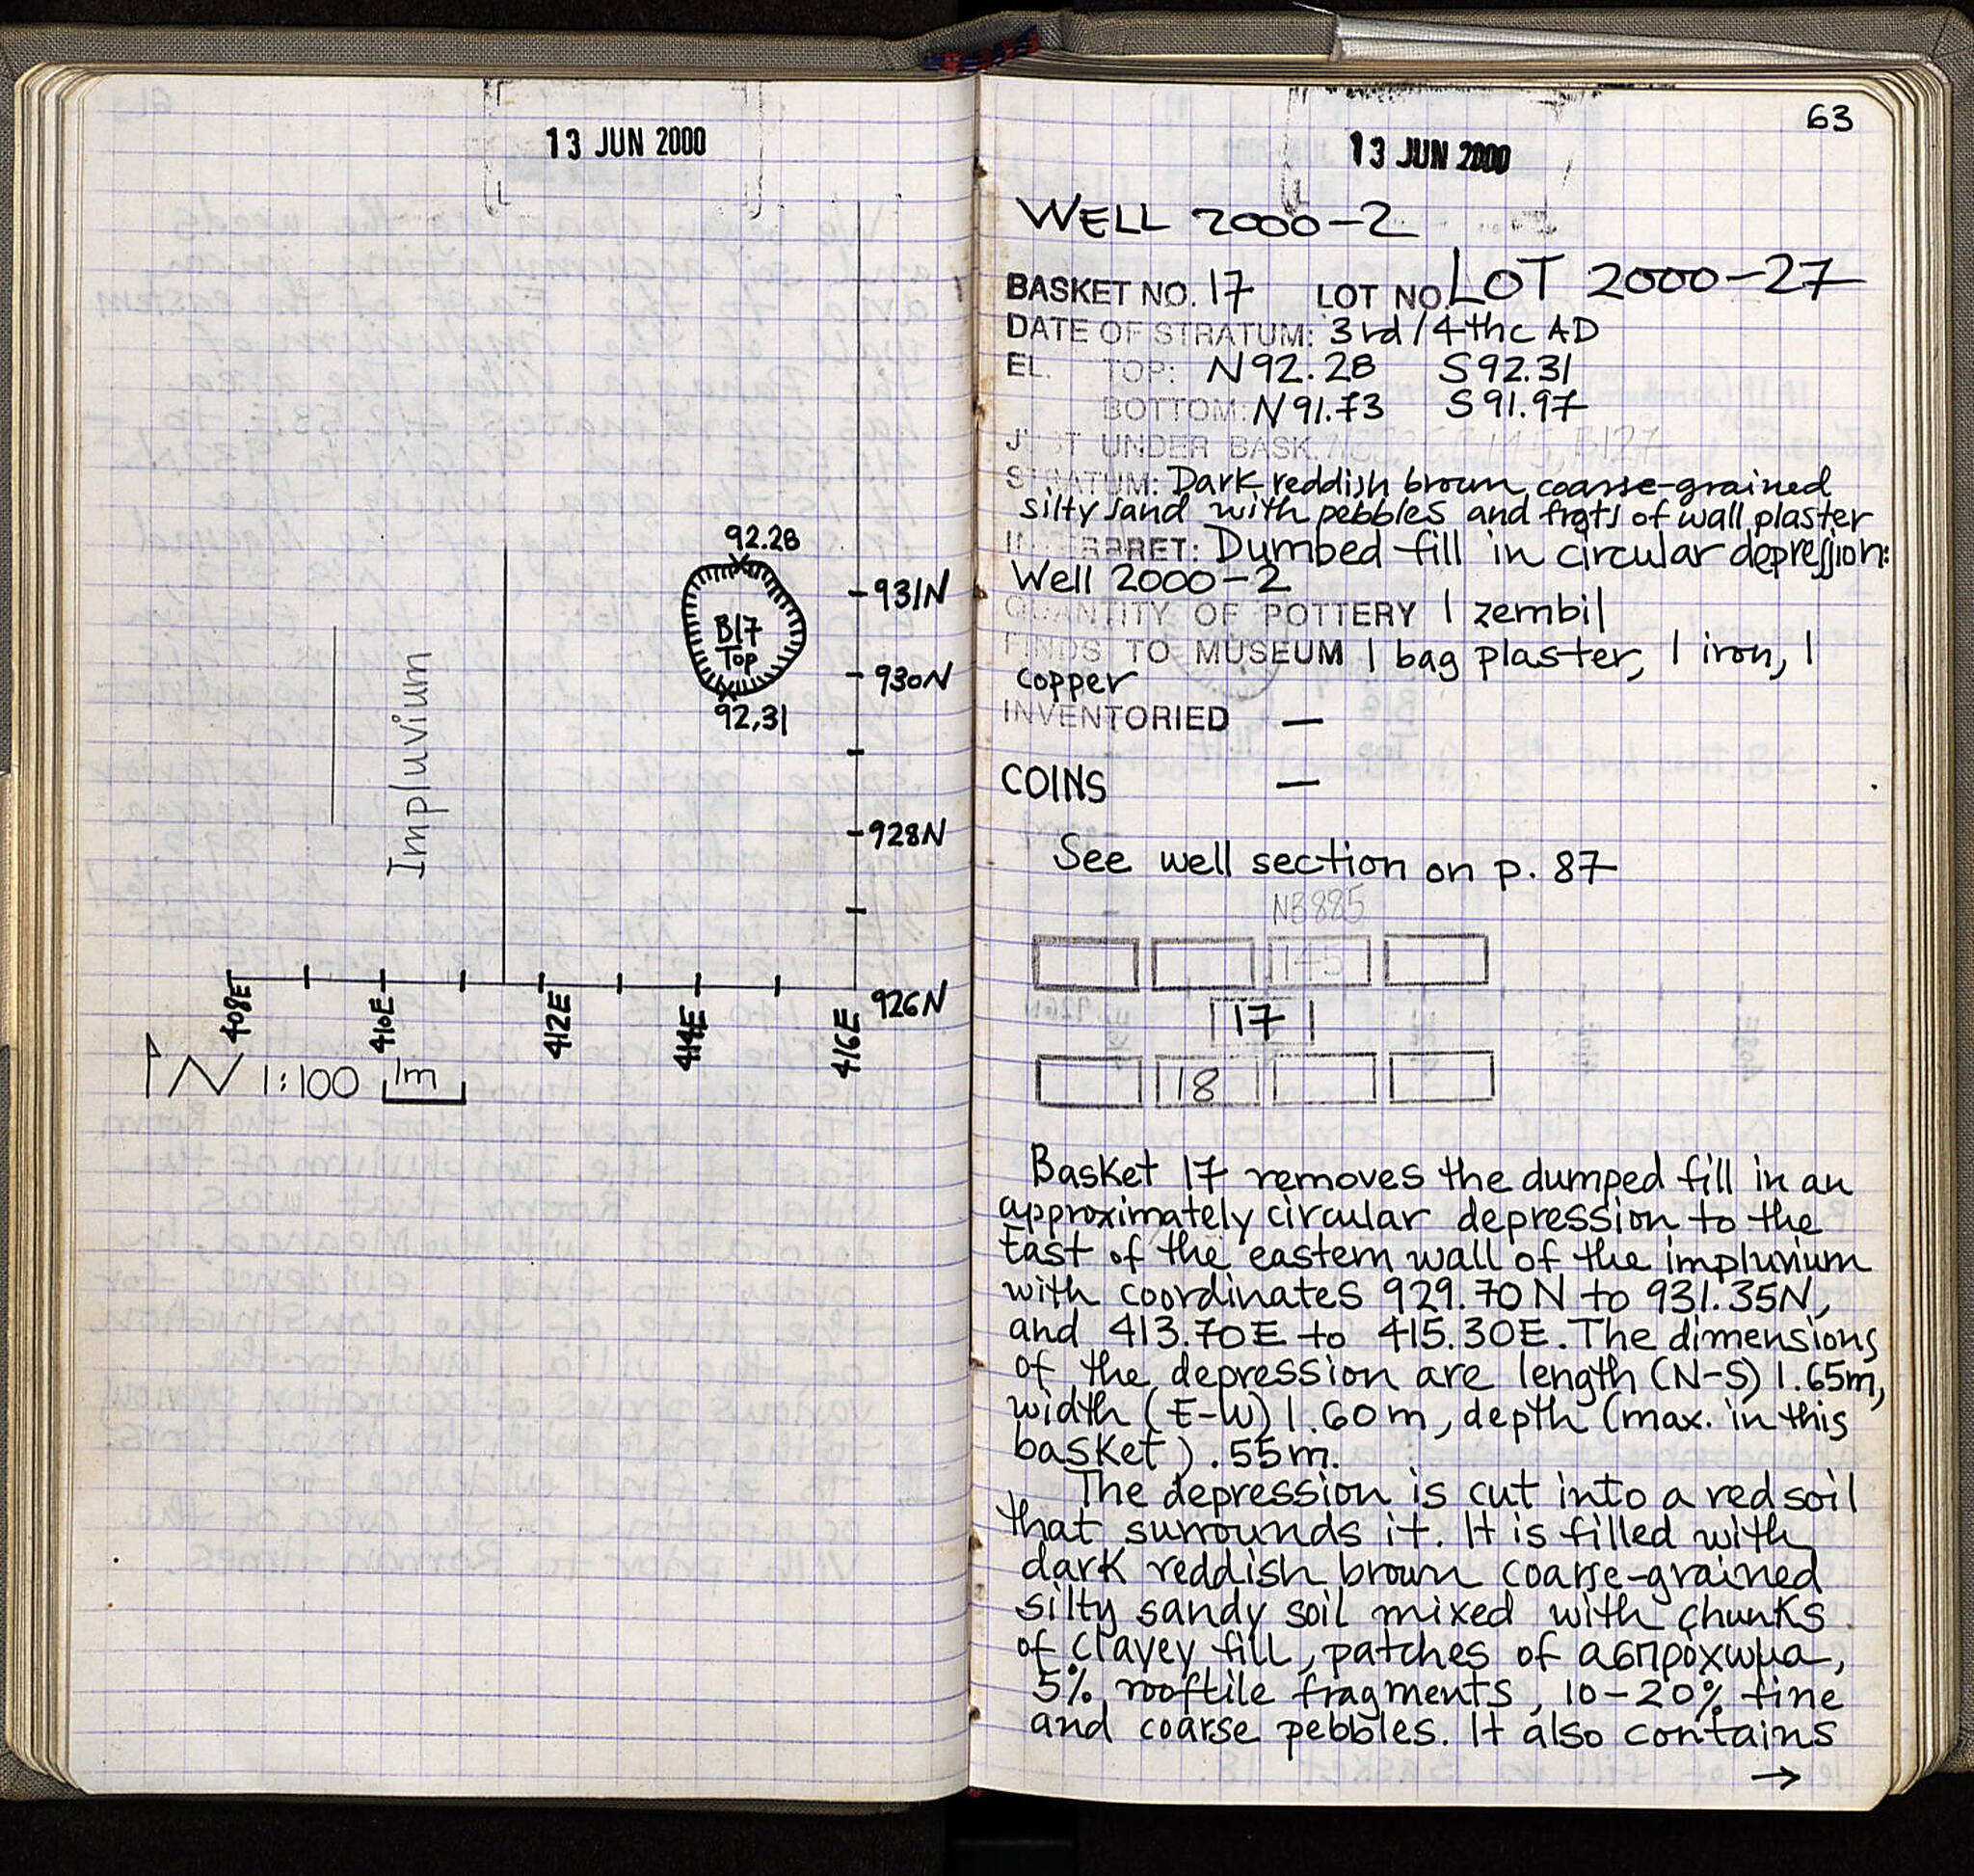 13 JUN 2000
92.28
B17
Top
92.31
Impluvium
931N
930N
928N
926N
408E
410E
412E
414E
416E
N 1:100 1m
63
13 JUN 2000
WELL 2000-2
BASKET NO. 17 LOT NO. LOT 2000-27
DATE OF STRATUM: 3rd/4thc AD
EL. TOP: N92.28 S92.31
BOTTOM: N91.73 S91.97
JUST UNDER BASK. 145, B127
STRATUM: Dark reddish brown coarse-grained
silty sand with pebbles and frgts of wall plaster
INTERPRET: Dumbed fill in circular depression:
Well 2000-2
QUANTITY OF POTTERY 1 zembil
FINDS TO MUSEUM 1 bag plaster, 1 iron, 1
copper
INVENTORIED —
COINS —
See well section on p. 87
NB885
145
17
18
Basket 17 removes the dumped fill in an
approximately circular depression to the
East of the eastern wall of the impluvium
with coordinates 929.70N to 931.35N,
and 413.70E to 415.30E. The dimensions
of the depression are length (N-S) 1.65m,
width (E-W) 1.60m, depth (max. in this
basket) .55m.
The depression is cut into a red soil
that surrounds it. It is filled with
dark reddish brown coarse-grained
silty sandy soil mixed with chunks
of clayey fill, patches of ασπρόχωμα,
5% rooftile fragments, 10-20% fine
and coarse pebbles. It also contains
→